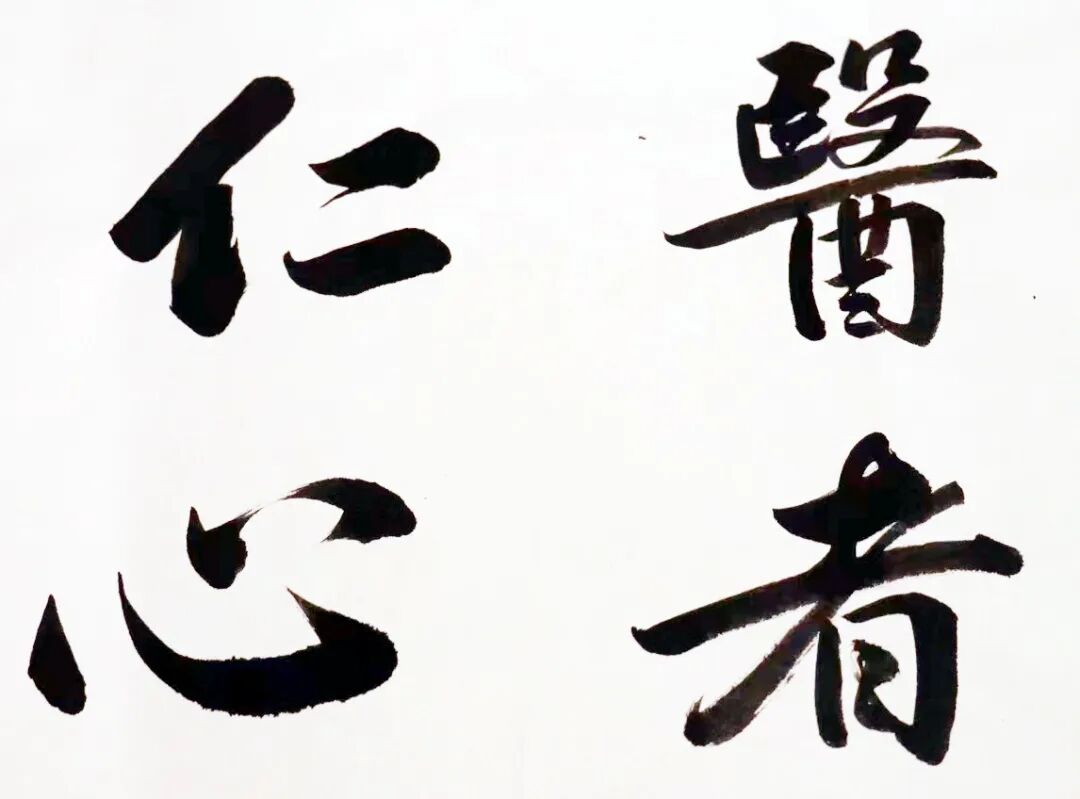 醫者
仁心